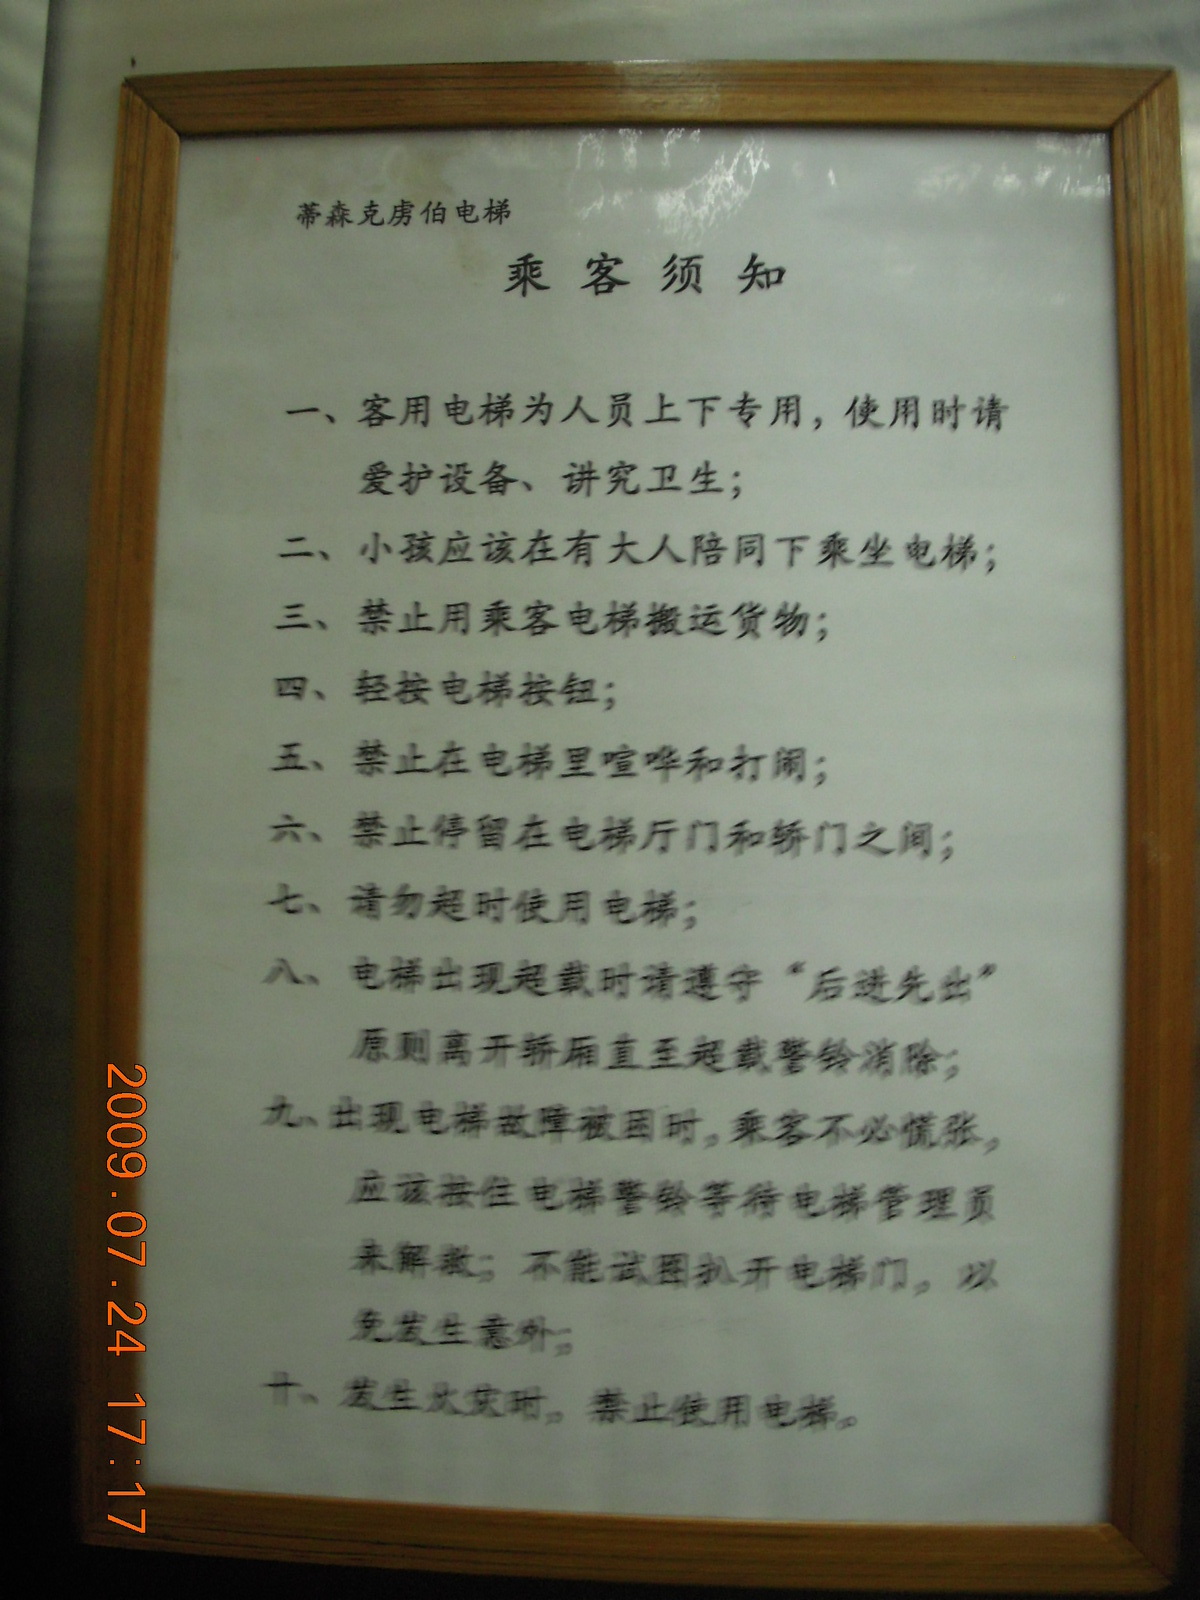 蒂森克虏伯电梯
乘客须知
一、客用电梯为人员上下专用，使用时请
爱护设备、讲究卫生；
二、小孩应该在有大人陪同下乘坐电梯；
三、禁止用乘客电梯搬运货物；
四、轻按电梯按钮；
五、禁止在电梯里喧哗和打闹；
六、禁止停留在电梯厅门和轿门之间；
七、请勿超时使用电梯；
八、电梯出现超载时请遵守“后进先出”
原则离开轿厢直至超载警铃消除；
九、出现电梯故障被困时，乘客不必慌张，
应该按住电梯警铃等待电梯管理员
来解救；不能试图扒开电梯门，以
免发生意外；
十、发生火灾时，禁止使用电梯。
2009.07.24 17:17